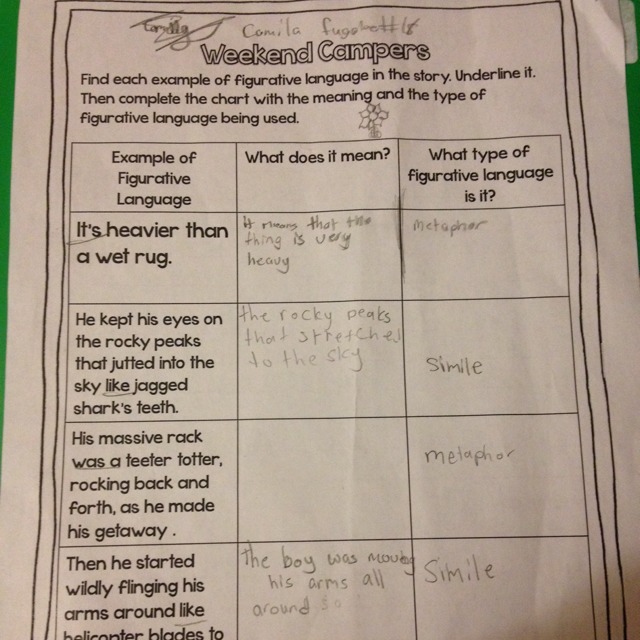 Camila
Weekend Campers
Find each example of figurative language in the story. Underline it.
Then complete the chart with the meaning and the type of
figurative language being used.
Example of
Figurative
Language
What does it mean?
What type of
figurative language
is it?
It's heavier than
a wet rug.
It means that the
thing is very
heavy
metaphor
He kept his eyes on
the rocky peaks
that jutted into the
sky like jagged
shark's teeth.
the rocky peaks
that stretched
to the sky
Simile
His massive rack
was a teeter totter,
rocking back and
forth, as he made
his getaway .
metaphor
Then he started
wildly flinging his
arms around like
helicopter blades to
the boy was moving
his arms all
around so
Simile